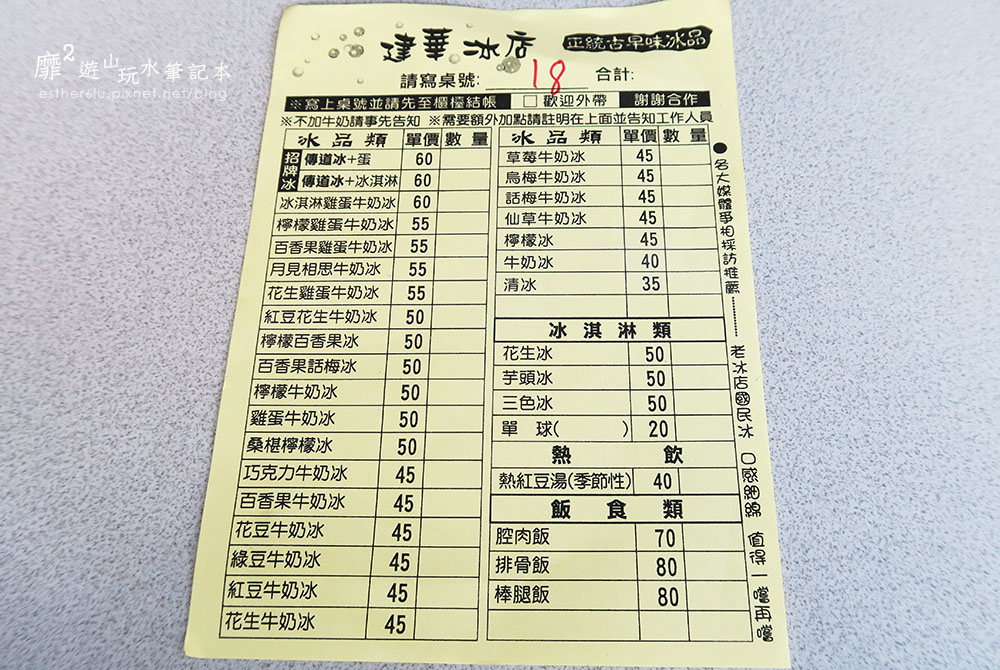 靡²遊山玩水筆記本
estherelu.pixnet.net/blog
建華冰店 正統古早味冰品
請寫桌號: 18 合計:
※寫上桌號並請先至櫃檯結帳 □ 歡迎外帶 謝謝合作
※不加牛奶請事先告知 ※需要額外加點請註明在上面並告知工作人員
冰品類 單價 數量
招牌冰
傳道冰+蛋 60
傳道冰+冰淇淋 60
冰淇淋雞蛋牛奶冰 60
檸檬雞蛋牛奶冰 55
百香果雞蛋牛奶冰 55
月見相思牛奶冰 55
花生雞蛋牛奶冰 55
紅豆花生牛奶冰 50
檸檬百香果冰 50
百香果話梅冰 50
檸檬牛奶冰 50
雞蛋牛奶冰 50
桑椹檸檬冰 50
巧克力牛奶冰 45
百香果牛奶冰 45
花豆牛奶冰 45
綠豆牛奶冰 45
紅豆牛奶冰 45
花生牛奶冰 45
冰品類 單價 數量
草莓牛奶冰 45
烏梅牛奶冰 45
話梅牛奶冰 45
仙草牛奶冰 45
檸檬冰 45
牛奶冰 40
清冰 35
冰淇淋類
花生冰 50
芋頭冰 50
三色冰 50
單球( ) 20
熱飲
熱紅豆湯(季節性) 40
飯食類
腔肉飯 70
排骨飯 80
棒腿飯 80
●名大媒體爭相採訪推薦………老冰店國民冰 口感細綿 值得一嚐再嚐